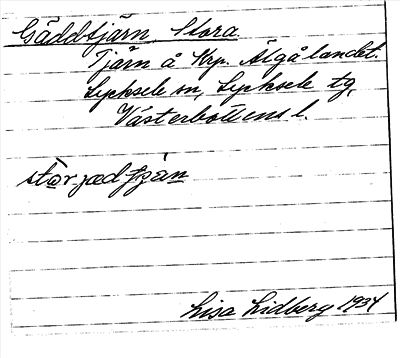 Gäddtjärn, Stora
Tjärn å Krp. Älgålandet.
Lycksele sn, Lycksele tg,
Västerbottens l.
stor jæd tjæn
Lisa Lidberg 1934